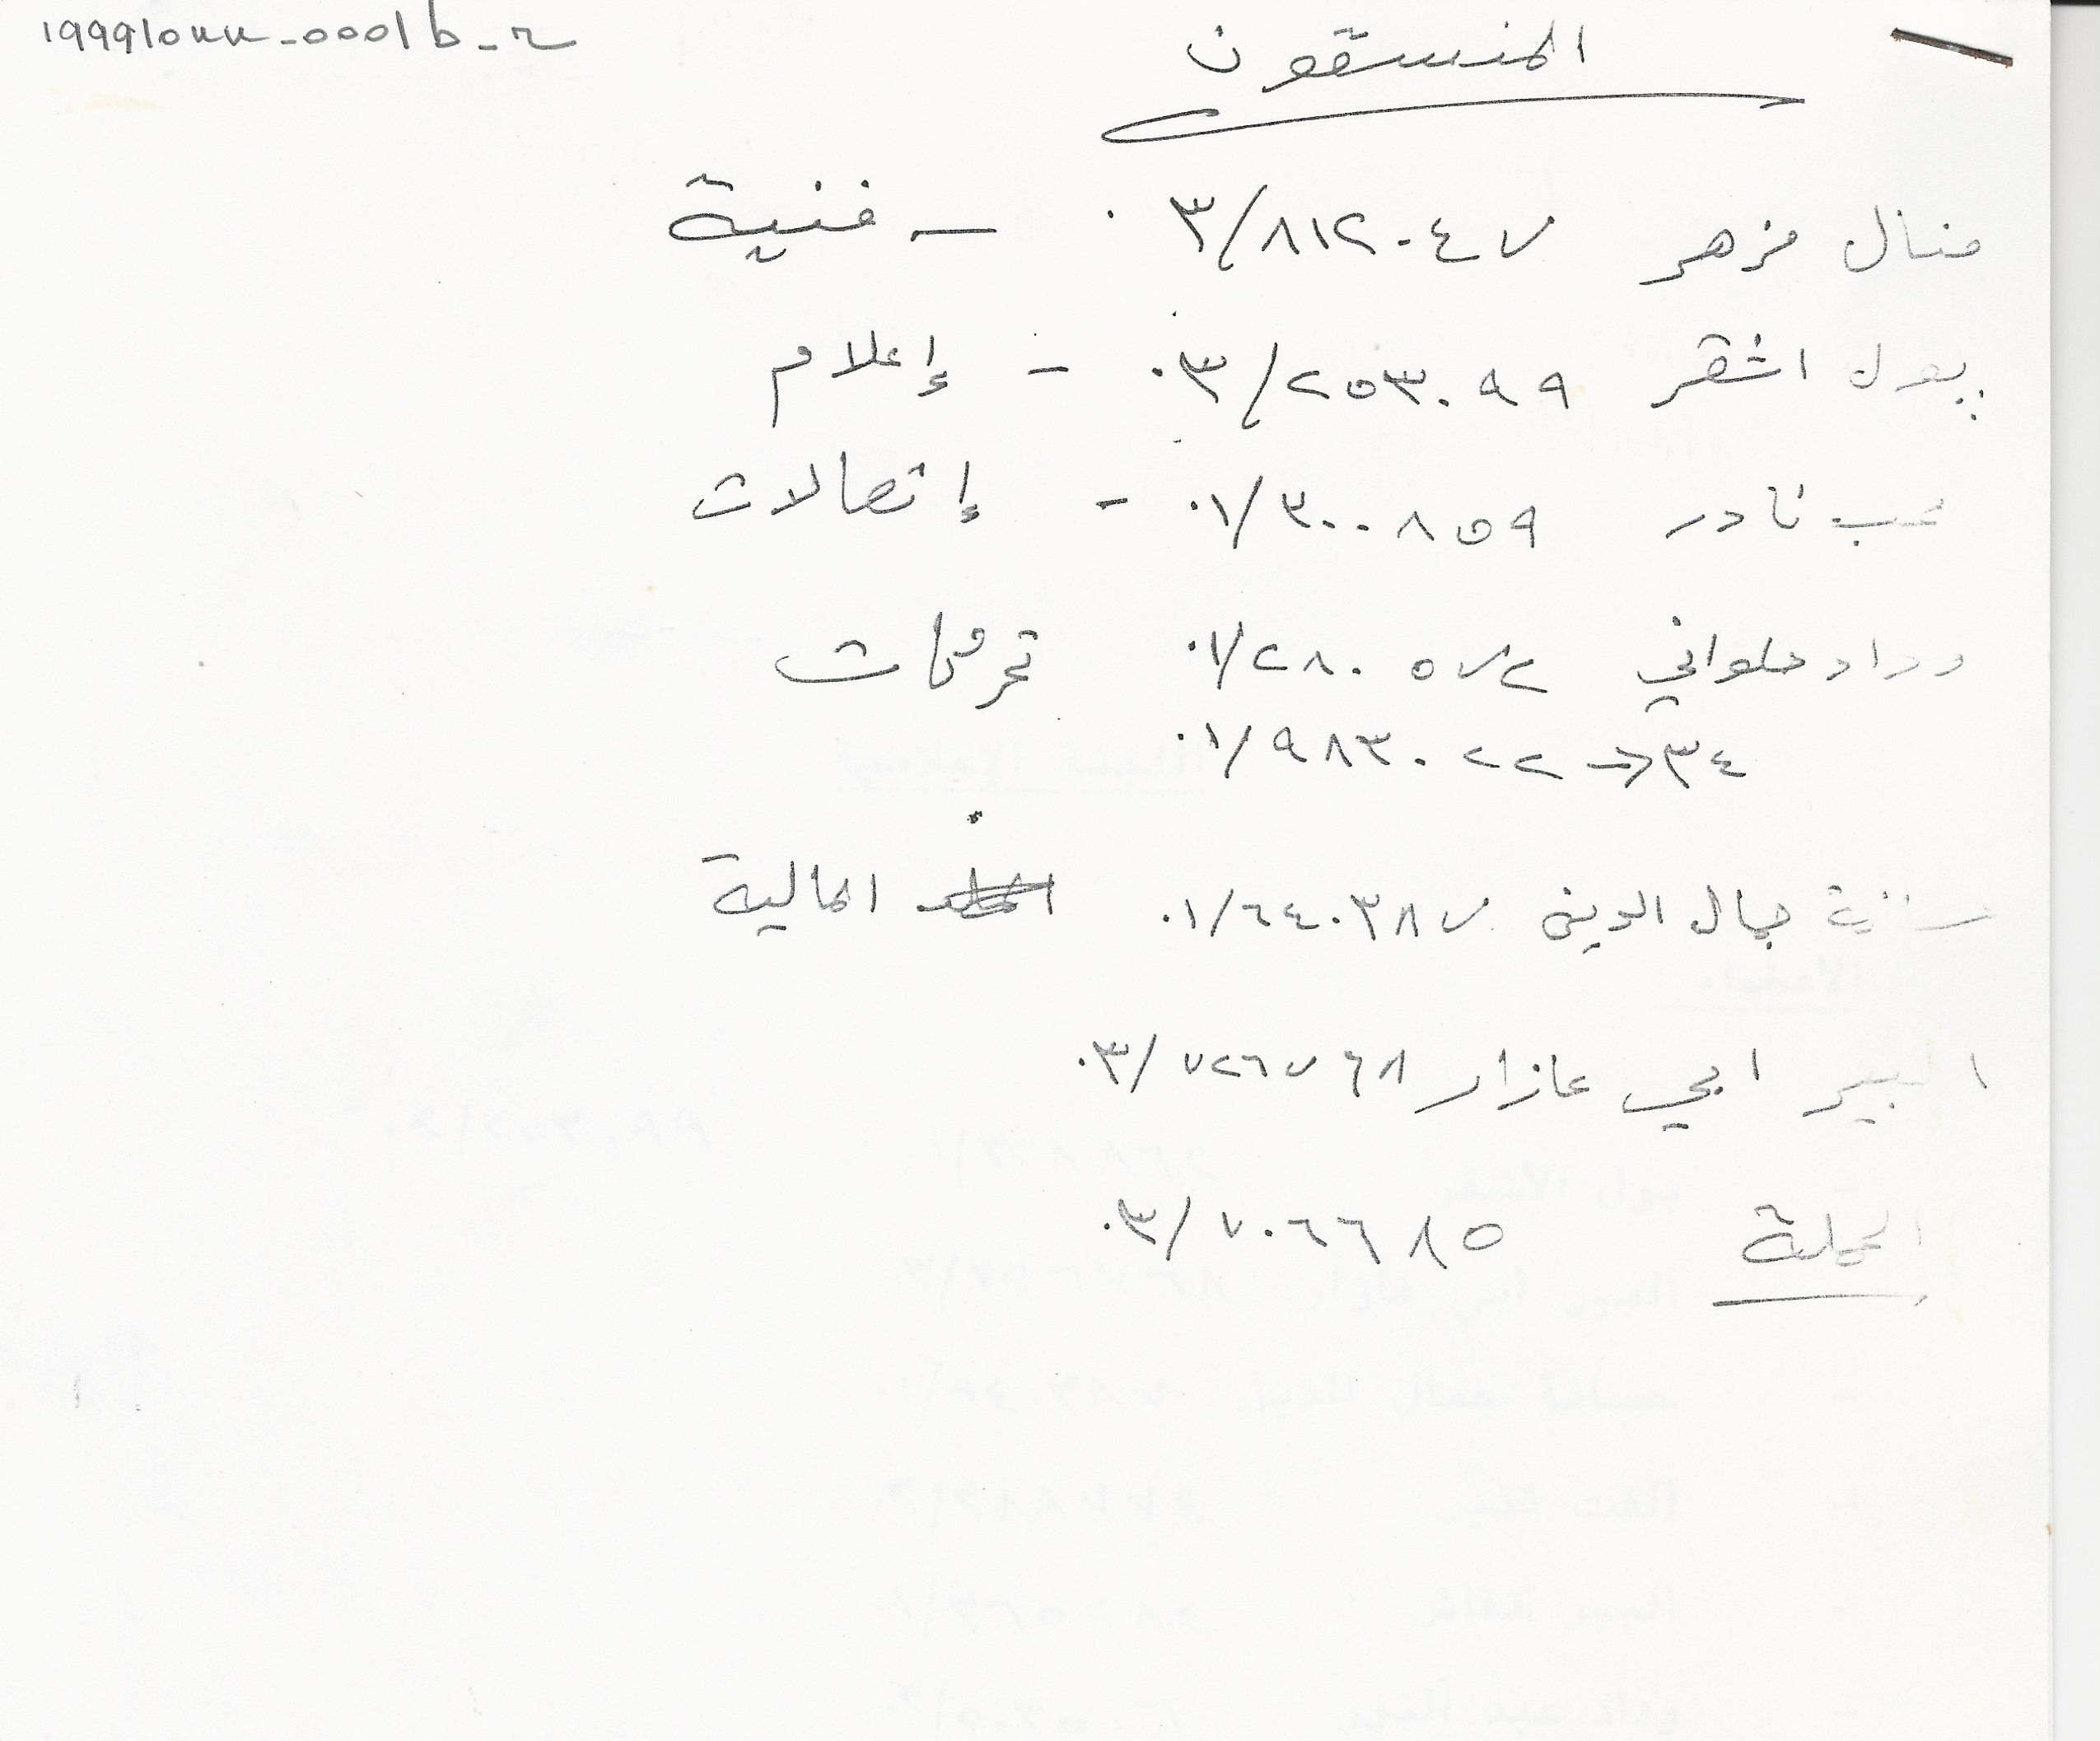 19991044-0001b-2
المنسقون
منال مزهر ٠٣/٨١٢٠٤٧ - فنية
پول اشقر ٠٣/٢٥٣٠٩٩ - إعلام
نادر ٠١/٣٠٠٨٥٩ - إتصالات
وداد حلواني ٠١/٢٨٠٥٧٢ تحركات
٠١/٩٨٣٠٢٢ → ٣٤
جمال الدين ٠١/٦٤٠٣٨٧ المالية
البير ابي عازار ٠٣/٧٢٦٧٦٨
الحملة ٠٣/٧٠٦٦٨٥